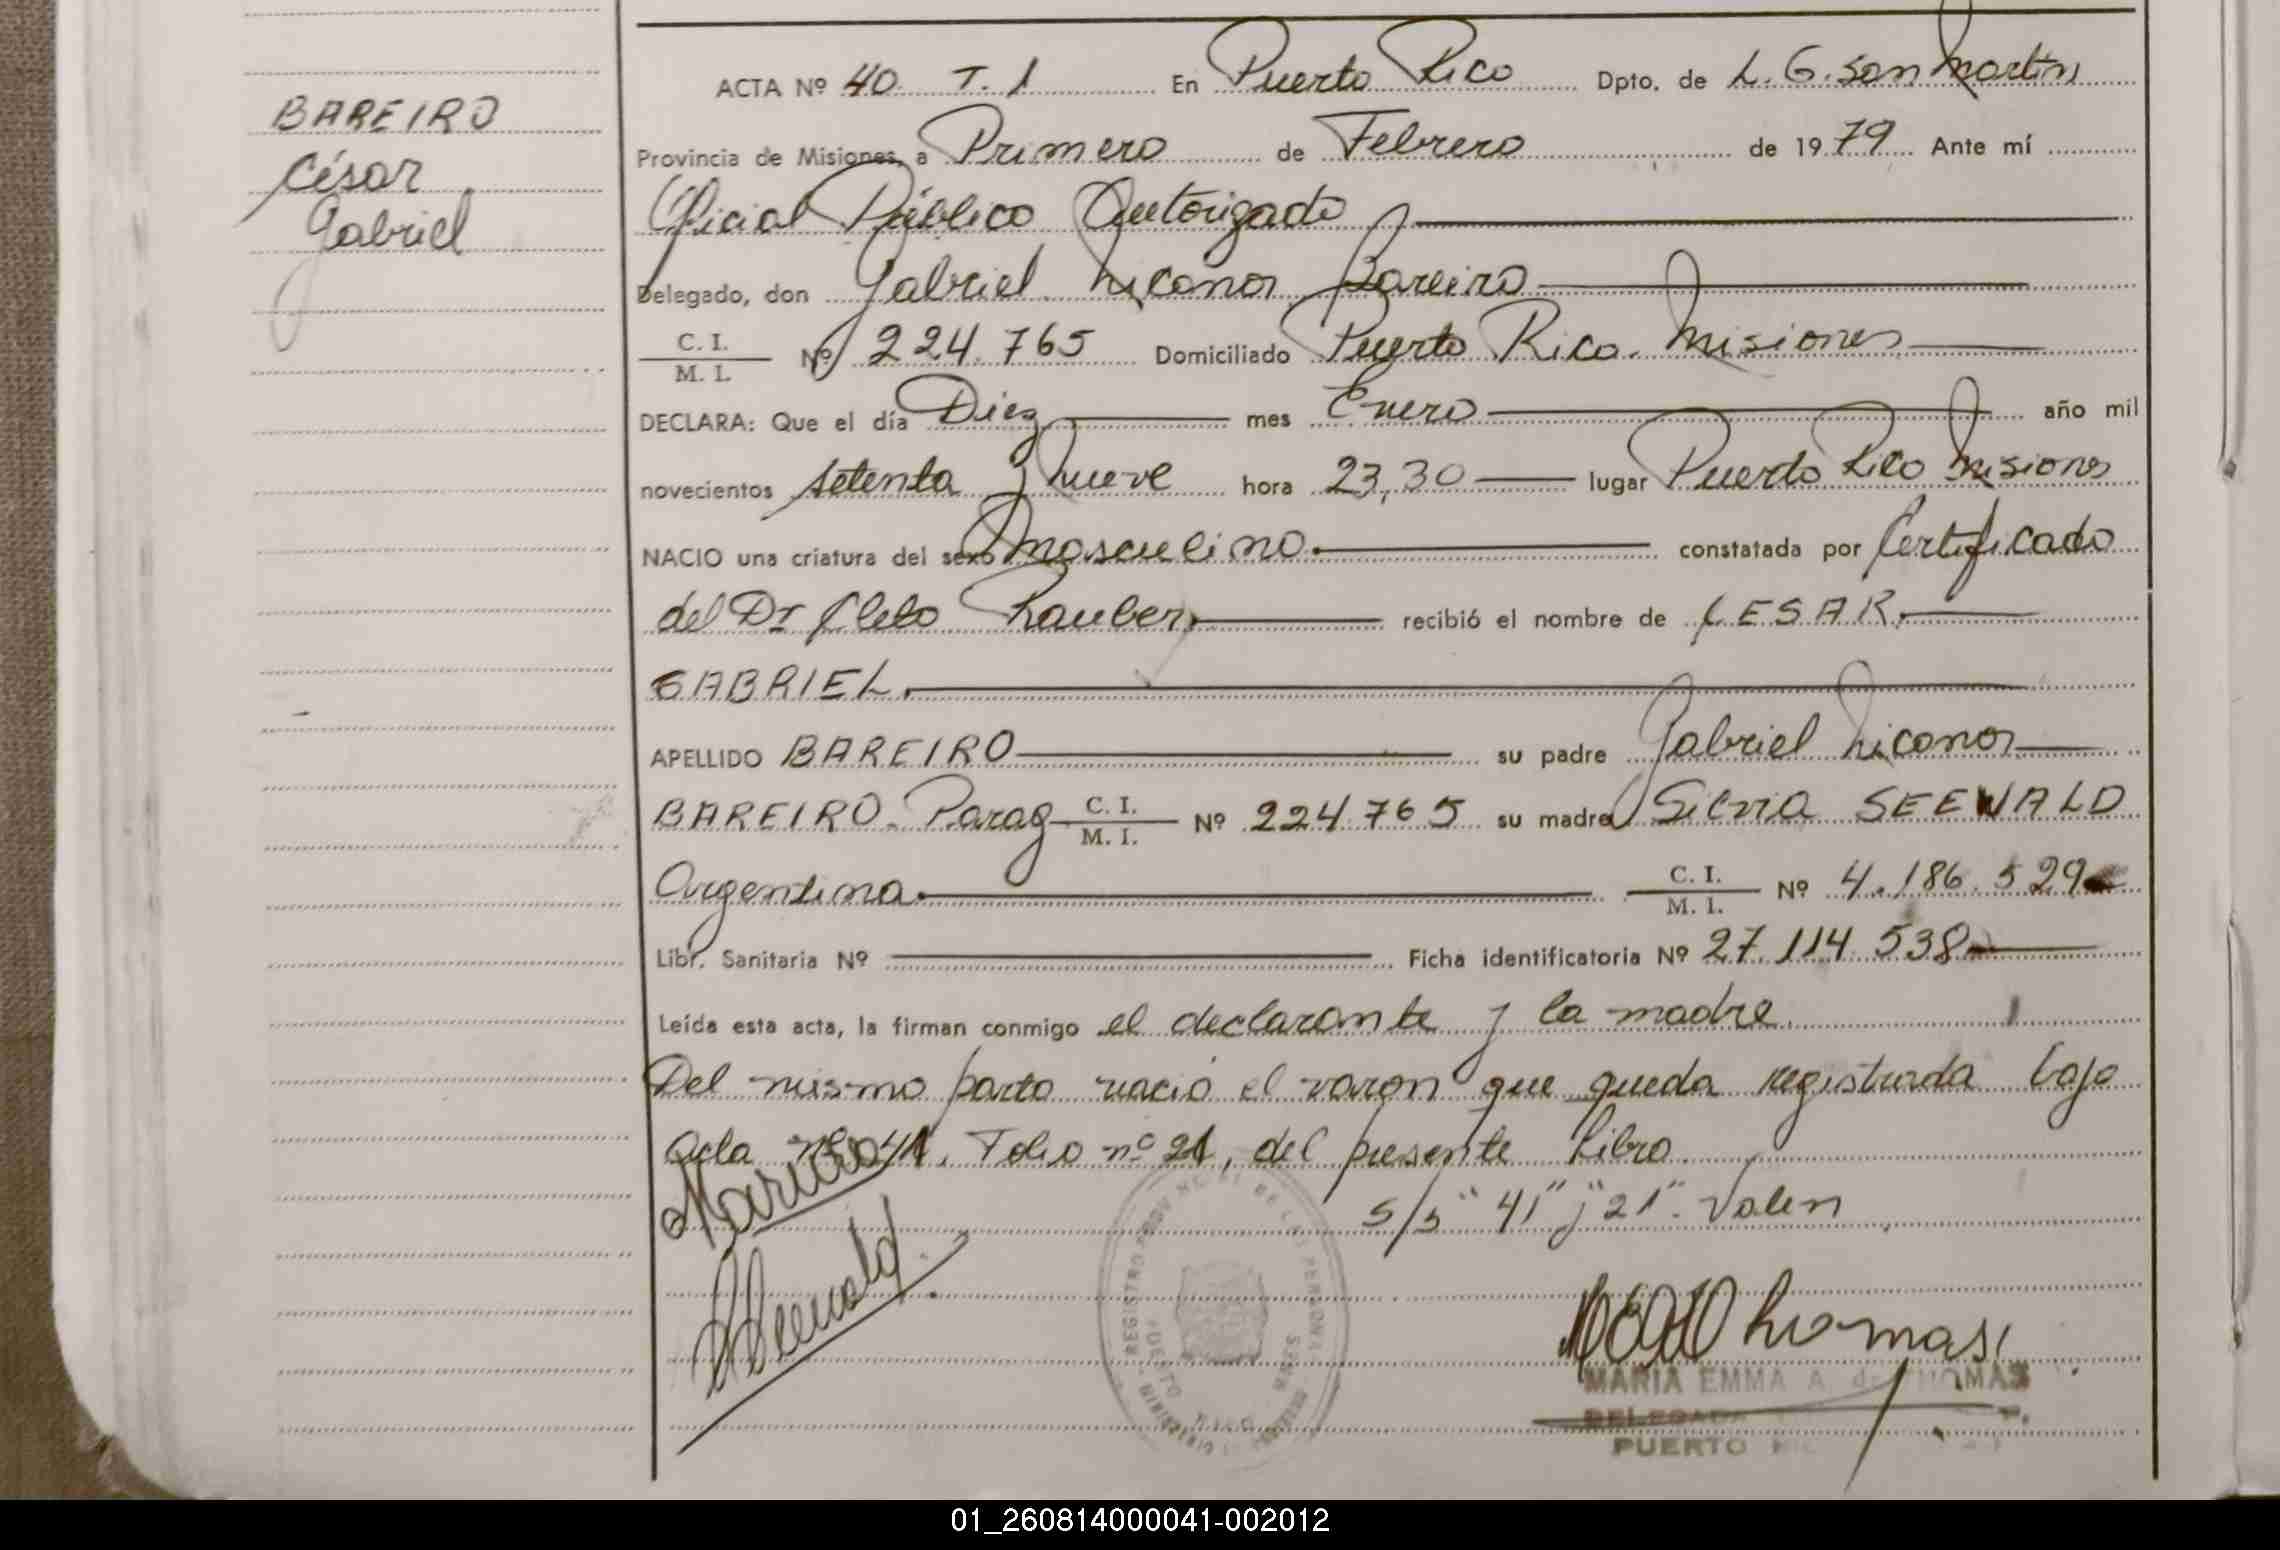 BAREIRO
César
Gabriel
ACTA Nº 40 T. 1 En Puerto Rico Dpto. de L. G. San Martín
Provincia de Misiones, a Primero de Febrero de 1979 Ante mí
Oficial Público Autorizado
Delegado, don Gabriel Nicanor Bareiro
C. I. / M. I. Nº 224.765 Domiciliado Puerto Rico. Misiones
DECLARA: Que el día Diez mes Enero año mil
novecientos setenta y nueve hora 23,30 lugar Puerto Rico Misiones
NACIO una criatura del sexo masculino constatada por Certificado
del Dr Cleto Rauber recibió el nombre de CESAR
GABRIEL
APELLIDO BAREIRO su padre Gabriel Nicanor
BAREIRO. Parag C. I. / M. I. Nº 224.765 su madre Silvia SEEWALD
Argentina C. I. / M. I. Nº 4.186.529
Libr. Sanitaria Nº Ficha identificatoria Nº 27.114.538
Leída esta acta, la firman conmigo el declarante y la madre
Del mismo parto nació el varon que queda registrada bajo
Acta nº 41, Folio nº 21, del presente Libro
s/b "41" y "21". Valen
Seewald
REGISTRO PROVINCIAL DE LAS PERSONAS
PUERTO RICO
MISIONES
Thomas
MARIA EMMA A. de THOMAS
DELEGADA
PUERTO RICO
01_260814000041-002012